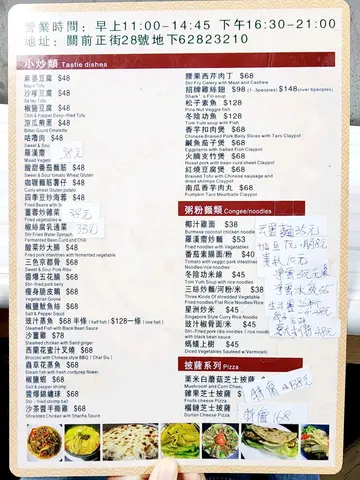 營業時間: 早上11:00-14:45 下午16:30-21:00
地址: 關前正街28號地下62823210
小炒類 Tastie dishes
麻婆豆腐 $48
Mapo Tofu
沙嗲豆腐 $48
Satay Tofu
椒鹽豆腐 $48
Chili & Pepper Deep-fried Tofu
涼瓜煎蛋 $48
Bitter Gourd Omelette
咕嚕肉 $48
Sweet & Sour
羅漢齋
Mixed Vegets
酸甜番茄麵筋 $48
Sweet & Sour tomatoes Wheat Gluten
咖喱麵筋薯仔 $48
Curry wheat Gluten potato
四季豆炒海茸 $48
Fried Beans with
薑蓉炒雜菜
Fried vegetables
椒絲腐乳通菜
Fermented Bean Curd and Chili
酸菜炒大腸 $48
Fried pork intestines with fermented vegetable
三色京都骨 $68
Sweet & Sour Pork Ribs
薑爆五花腩 $68
Stir-Fried pork
榎身脆皮鵝 $68
Vegetarian Goose
椒鹽魷魚絲 $68
Salt & Pepper Squid
豉汁蒸魚 $68半條 (half fish) $128一條 (one fish)
Steamed Fish with Black Bean Sauce
沙薑雞 $78
Steamed chicken with Sand ginger
西蘭花蜜汁叉燒 $68
Broccoli with Chinese style BBQ (Char Siu)
蟲草花蒸魚 $68
Steam fish with fresh cordyceps flower
椒鹽蝦 $68
Salt & Pepper shrimp
薑爆錦繡球 $68
Stir-fried shrimp ball
沙茶醬手撕雞 $68
Shredded Chicken with Shacha Sauce
腰果西芹肉丁 $68
Stir Fry Celery with Meat and Cashew
招牌雞絲翅 $98 (1-5peoples) $148 (over 6peoples)
Shark's Fin soup
松子素魚 $128
Pine Nut Veggie Fish
冬陰功魚 $128
Tom Yum soup with Fish
香芋扣肉煲 $68
Chinese Braised Pork Belly Slices with Taro Claypot
鹹魚茄子煲 $68
Eggplants with Salted Fish Claypot
火腩支竹煲 $68
Roast pork with bean curd sheet Claypot
紅燒豆腐煲 $68
Braised Tofu with Chinese sausage and dried shrimps Claypot
南瓜香芋肉丸 $68
Pumpkin Taro Meatballs Claypot
粥粉麵類 Congee/noodles
椰汁雞面 $38
Burmese coconut chicken noodle
羅漢齋炒麵 $53
Noodles with Mixed Vegetables
番茄素腸面/粉 $40
Tomato with veggie pork intestines Noodles/rice noodles
冬陰功米線 $45
Tom Yum Soup with rice noodles
三絲炒麵/河粉/米 $38
Three Kinds Of shredded Vegetables Fried Noodles/Flat Rice Noodles/rice noodles
星洲炒米 $45
Singapore Style Curry Rice Noodle
豉汁椒骨面/米 $45
Stir-Fried pork ribs noodles / rice noodles with black bean sauce
螞蟻上樹 $45
Diced Vegetables Sautéed w/Vermicelli
披薩系列 Pizza
栗米白蘑菇芝士披薩
雜果芝士披薩
Fruits cheese Pizza
榴槤芝士披薩
Durians cheese Pizza
特價168